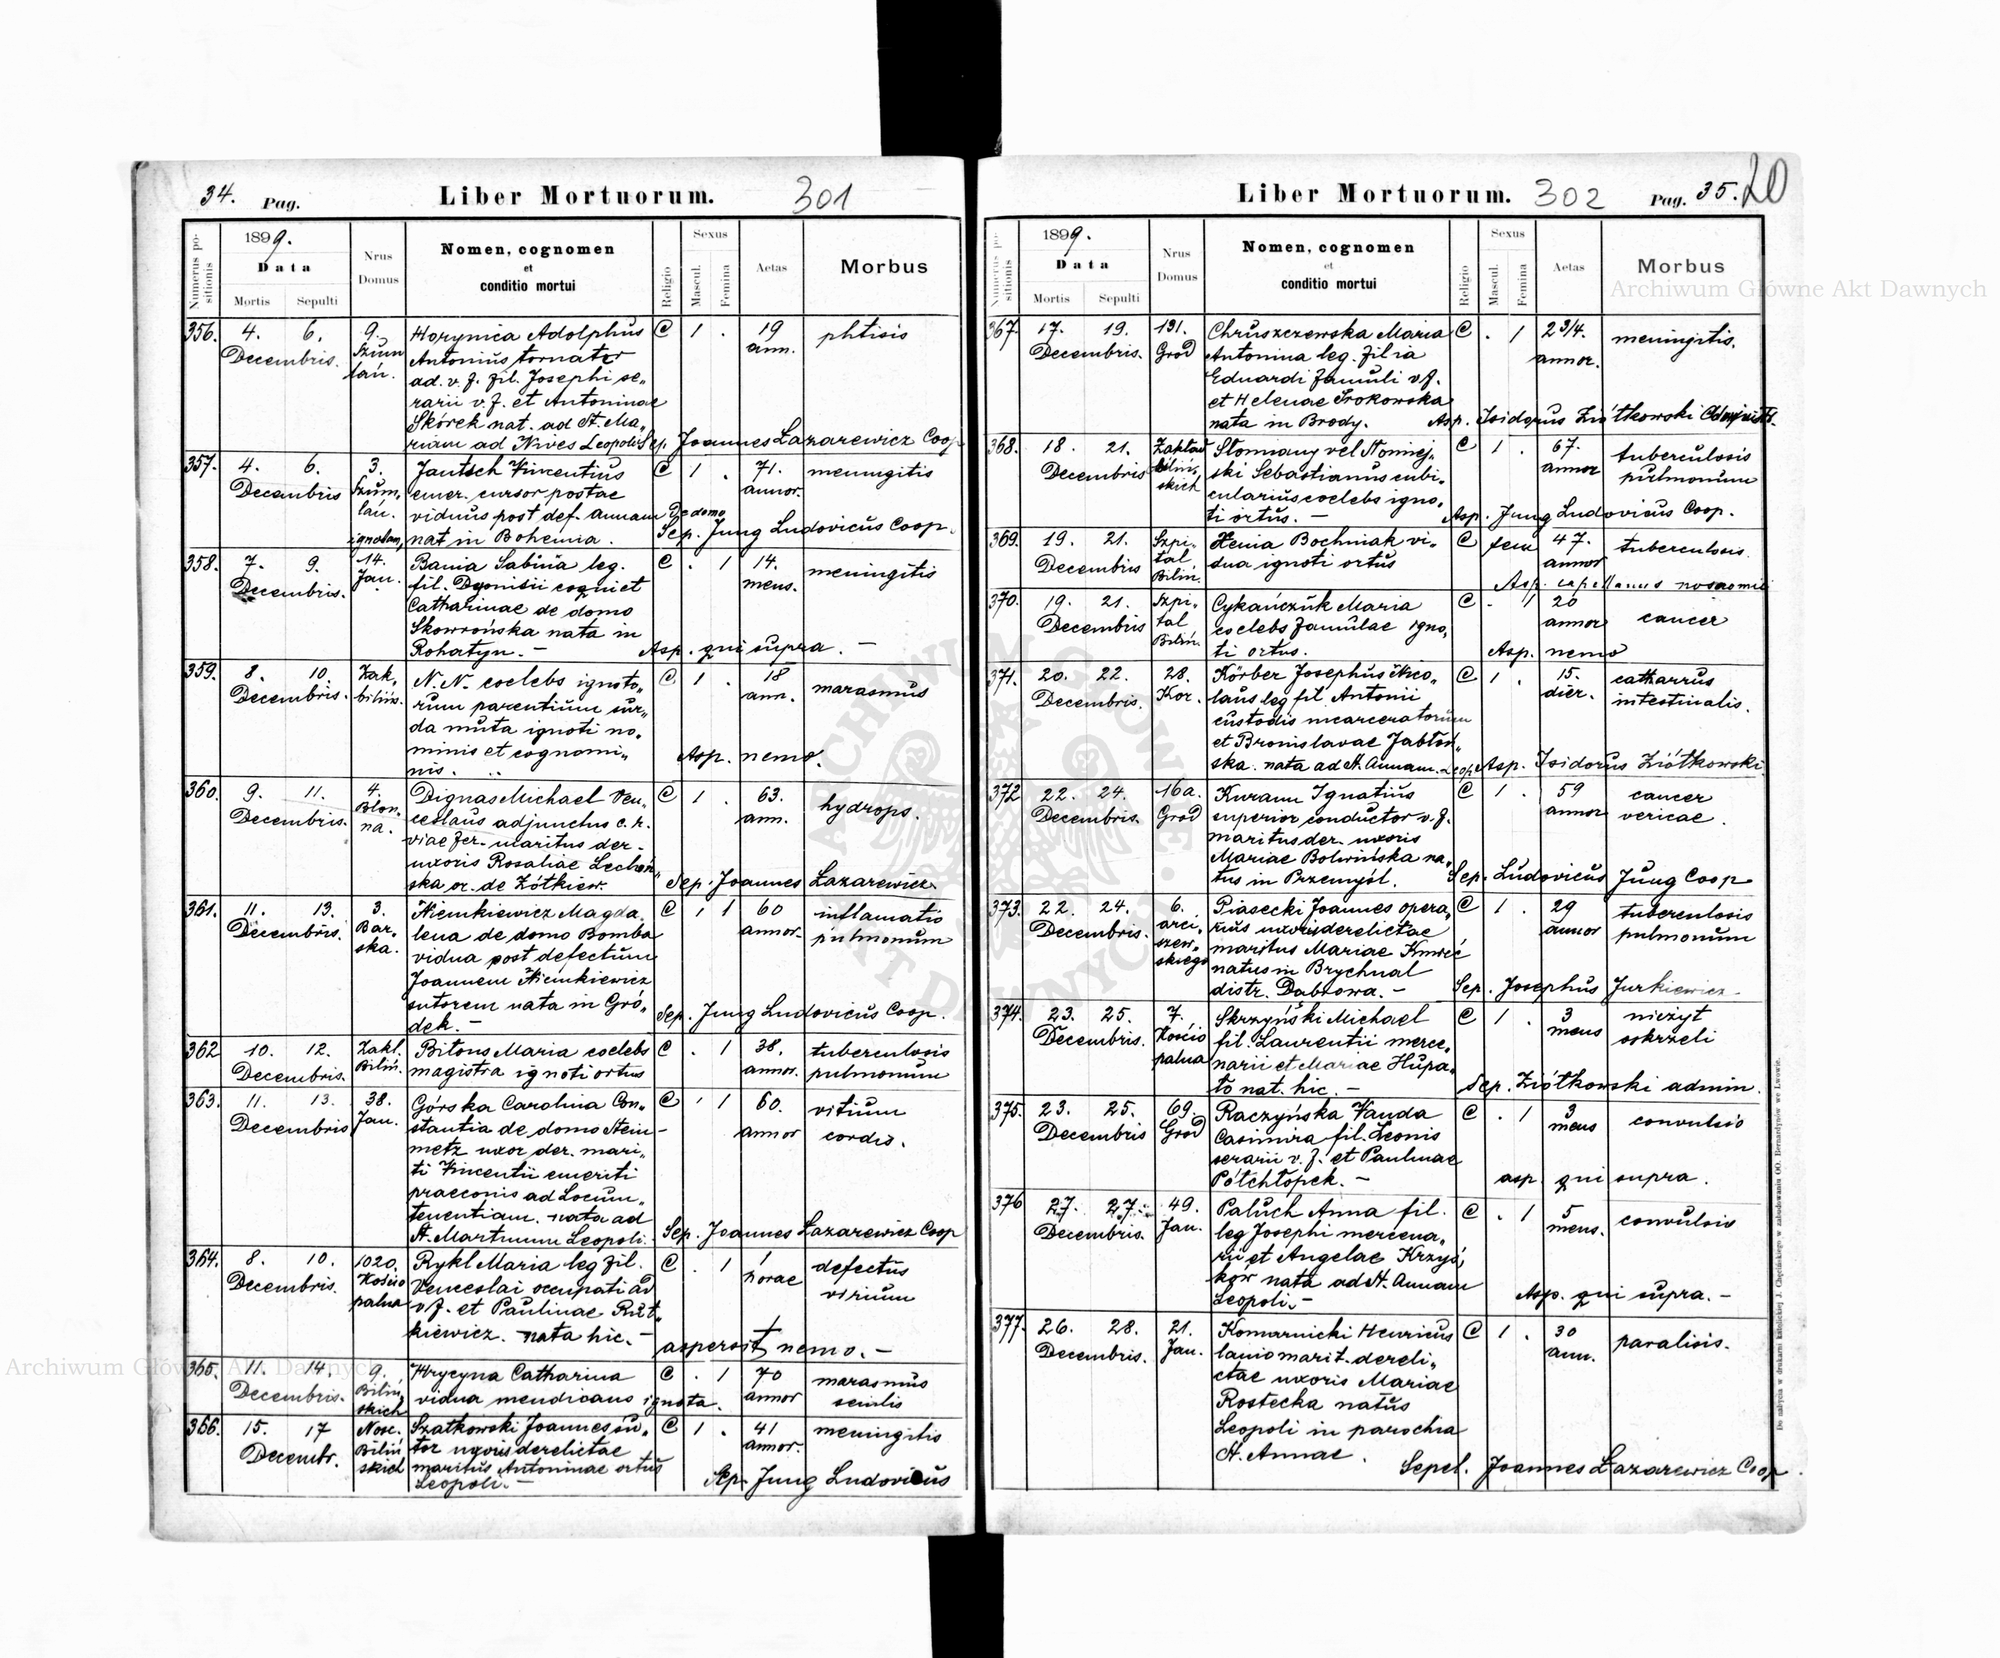 34. Pag. Liber Mortuorum. 301
Numerus positionis
1899.
Data
Mortis Sepulti
Nrus Domus
Nomen, cognomen
et
conditio mortui
Religio
Sexus
Mascul. Femina
Aetas
Morbus
356. 4. 6. Decembris. 9. Szum lań.
Horynica Adolphus
Antonius tornator
ad. v. f. fil. Josephi se„
rarii v. f. et Antoninae
Skórek nat. ad St. Ma„
riam ad Nives Leopoli
C 1 . 19 ann. phtisis
Sep. Joannes Lazarewicz Coop
357. 4. 6. Decembris 3. Szum„ lań.
Jantsch Vincentius
emer. cursor postae
viduus post def. annam De domo
ignotam, nat in Bohemia.
C 1 . 71. annor. meningitis
Sep. Jung Ludovicus Coop.
358. 7. 9. Decembris. 14. Jan.
Bania Sabina leg.
fil. Dyonisii cogn et
Catharinae de domo
Skowrońska nata in
Rohatyn. —
C . 1 14. mens. meningitis
Asp. qui supra. —
359. 8. 10. Decembris. Zak„ bilińs.
N. N. coelebs ignoto„
rum parentium sur„
da muta ignoti no„
minis et cognomi„
nis.
C 1 . 18 ann. marasmus
Asp. nemo.
360. 9. 11. Decembris. 4. Blon„ na.
Dignas Michael Ven„
ceslaus adjunctus c. r.
viae fer. maritus der.
uxoris Rosaliae Lechoń„
ska or. de Żółkiew.
C 1 . 63. ann. hydrops.
Sep. Joannes Lazarewicz
361. 11. 13. Decembris. 3. Bar„ ska.
Niemkiewicz Magda
lena de domo Bomba
vidua post defectum
Joannem Niemkiewicz
sutorem nata in Gró„
dek. —
C . 1 60 annor. inflamatio pulmonum
Sep. Jung Ludovicus Coop.
362 10. 12. Decembris. Zakl. Biliń.
Bitons Maria coelebs
magistra ignoti ortus
C . 1 38. annor. tuberculosis pulmonum
363. 11. 13. Decembris 38. Jan.
Górska Carolina Con„
stantia de domo Stein„
metz uxor der. mari„
ti Vincentii emeriti
praeconis ad Locum„
tenentiam. nata ad
St. Martinum Leopoli.
C . 1 60. annor vitium cordis.
Sep. Joannes Lazarewicz Coop
364. 8. 10. Decembris. 1020. Kościo palna
Rykl Maria leg fil.
Venceslai occupati ad
v. f. et Paulinae Rut„
kiewicz. nata hic. —
C . 1 1 horae defectus virium
aspersit nemo. —
365. 11. 14. Decembris. 9. Biliń„ skich
Hrycyna Catharina
vidua mendicans ignota.
C . 1 70 annor marasmus senilis
366. 15. 17 Decembr. Nose. Biliń skich
Szatkowski Joannes su„
tor uxoris derelictae
maritus Antoninae ortus
Leopoli. —
C 1 . 41 annor. meningitis
Sep. Jung Ludovicus
Liber Mortuorum. 302 Pag. 35. 20
Numerus positionis
1899.
Data
Mortis Sepulti
Nrus Domus
Nomen, cognomen
et
conditio mortui
Religio
Sexus
Mascul. Femina
Aetas
Morbus
367. 17. 19. Decembris. 131. Grod
Chruszczewska Maria
Antonina leg. filia
Eduardi famuli v. f.
et Helenae Srokowska
nata in Brody.
C . 1 2 3/4. annor. meningitis.
Asp. Isidorus Ziółkowski
368. 18. 21. Decembris Zakład bilin„ skich
Słomiany vel Nomiej„
ski Sebastianus cubi„
cularius coelebs igno„
ti ortus. —
C 1 . 67. annor tuberculosis pulmonum
Asp. Jung Ludovicus Coop.
369. 19. 21. Decembris Szpi„ tal Bilin.
Xenia Bochniak vi„
dua ignoti ortus
C fem 47. annor tuberculosis.
Asp. capellanus nosocomii
370. 19. 21. Decembris Szpi„ tal Bilin.
Cykańczuk Maria
coelebs famulae igno„
ti ortus.
C . 1 20 annor cancer
Asp. nemo
371. 20. 22. Decembris. 28. Kor.
Körber Josephus Nico„
laus leg fil Antonii
custodis incarceratorum
et Bronislavae Jabłoń„
ska. nata ad St. Annam. Leop
C 1 . 15. dier. catharrus intestinalis.
Asp. Isidorus Ziółkowski.
372 22. 24. Decembris. 16a. Grod
Kuraun Ignatius
superior conductor v. f.
maritus der. uxoris
Mariae Bolwińska na„
tus in Przemyśl.
C 1 . 59 annor cancer vericae.
Sep. Ludovicus Jung Coop
373. 22. 24. Decembris. 6. arci„ szew„ skiego
Piasecki Joannes opera„
rius uxoris derelictae
maritus Mariae Kmieć
natus in Brychnal
distr. Dabrowa. —
C 1 . 29 annor tuberculosis pulmonum
Sep. Josephus Jurkiewicz
374. 23. 25. Decembris. 7. Kościo palna
Skrzyński Michael
fil. Laurentii merce„
narii et Mariae Hupa„
ło nat. hic. —
C 1 . 3 mens nieżyt oskrzeli
Sep. Ziółkowski admin.
375. 23. 25. Decembris 69. Grod
Raczyńska Vanda
Casimira fil. Leonis
serarii v. f. et Paulinae
Półchłopek. —
C . 1 3 mens convulsio
asp qui supra.
376 27. 27. Decembris. 49. Jan.
Paluch Anna fil.
leg Josephi mercena„
rii et Angelae Krzyś„
ków nata ad St. Annam
Leopoli. —
C . 1 5 mens. convulsio
Asp. qui supra. —
377. 26. 28. Decembris. 21. Jan.
Komarnicki Henricus
lanio marit. dereli„
ctae uxoris Mariae
Rostecka natus
Leopoli in parochia
St. Annae.
C 1 . 30 ann. paralisis.
Sepel. Joannes Lazarewicz Coop.
Do nabycia w drukarni katolickiej J. Chęcińskiego w zabudowaniu OO. Bernardynów we Lwowie.
Archiwum Główne Akt Dawnych
Archiwum Główne Akt Dawnych
ARCHIWUM GŁÓWNE AKT DAWNYCH